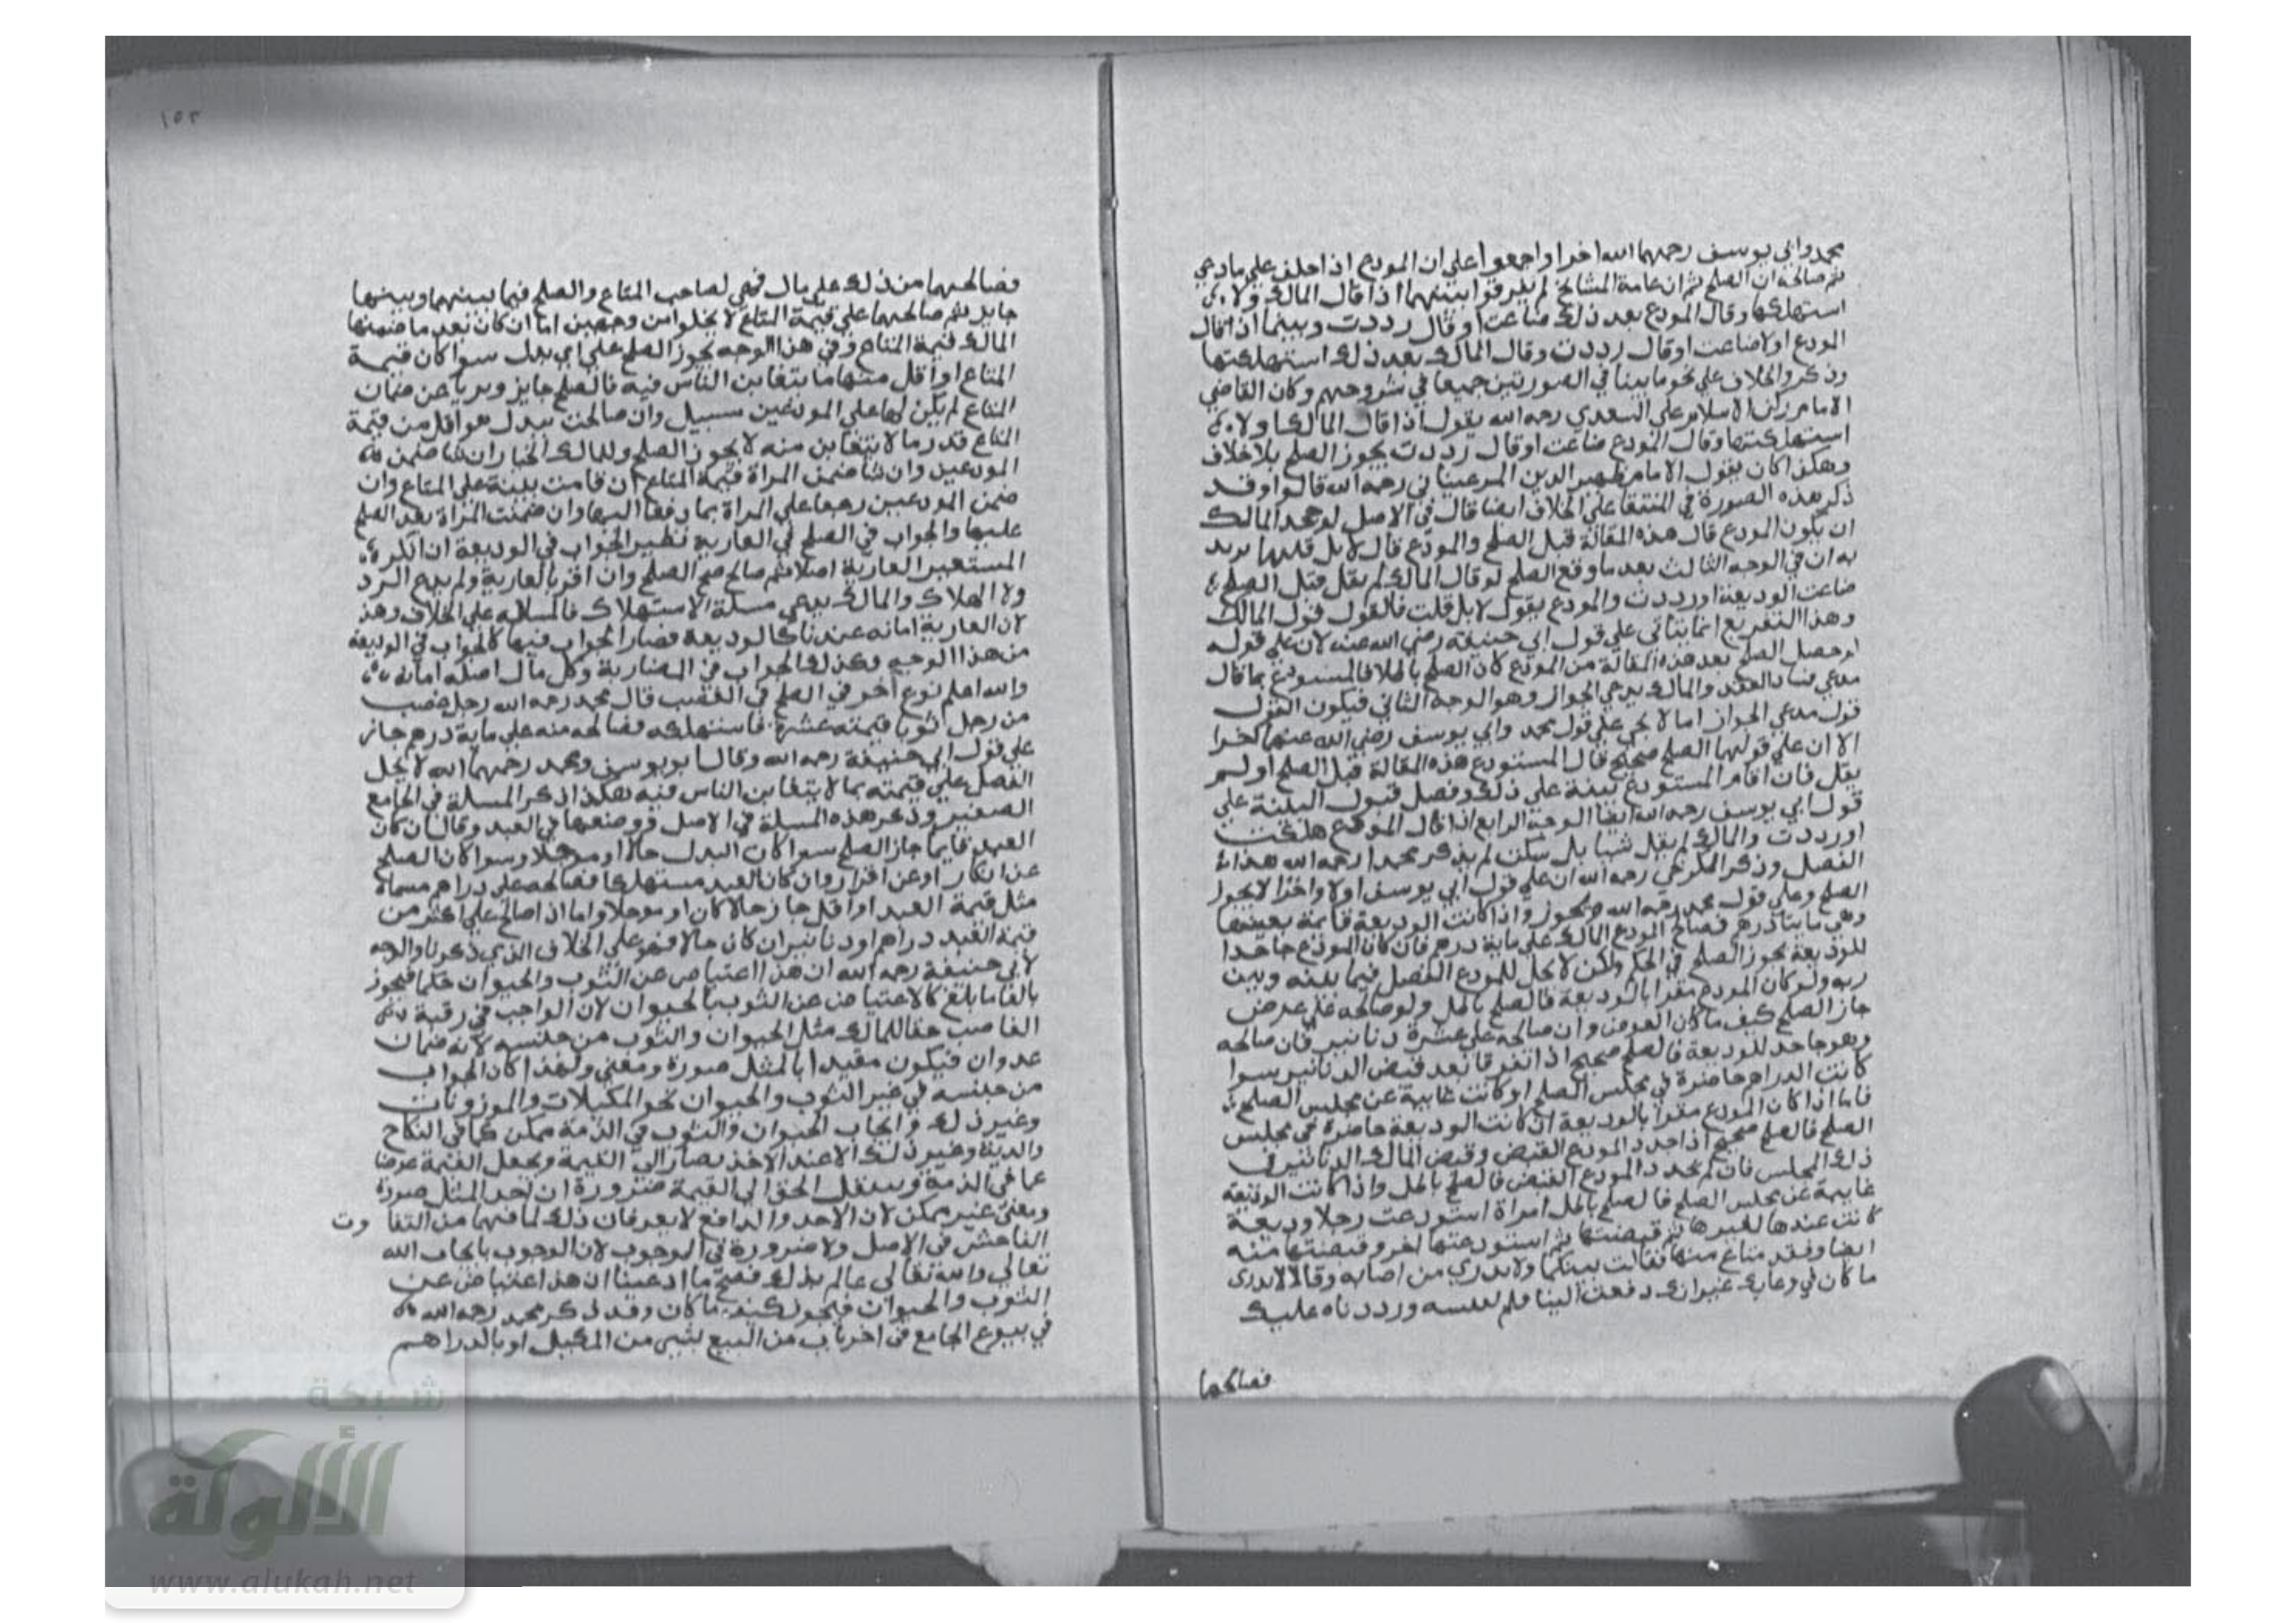 محمد وابي يوسف رحمهما الله اخرا واجمعوا علي ان المودع اذا حلف علي ما دعي
ثم صالحه ان الصلح ثم ان عامة المشايخ لم يفرقوا بينهما اذا قال المالك ولا
استهلكها وقال المودع بعد ذلك ضاعت او قال رددت وبينما اذا قال
المودع اولا ضاعت او قال رددت وقال المالك بعد ذلك استهلكتها
وذكروا الخلاف علي نحو ما بينا في الصورتين جميعا في شروحهم وكان القاضي
الامام ركن الاسلام علي السعدي رحمه الله يقول اذا قال المالك اولا
استهلكتها وقال المودع ضاعت او قال رددت يجوز الصلح بلا خلاف
وهكذا كان يقول الامام ظهير الدين المرغيناني رحمه الله قالوا وقد
ذكر هذه الصورة في المنتقا علي الخلاف ايضا قال في الاصل لو جحد المالك
ان يكون المودع قال هذه المقالة قبل الصلح والمودع قال لا بل قلتها يريد
به ان في الوجه الثالث بعد ما وقع الصلح لو قال المالك لم يقل قبل الصلح
ضاعت الوديعة او رددت والمودع يقول لا بل قلت فالقول قول المالك
وهذا التفريع انما يتاتي علي قول ابي حنيفة رضي الله عنه لان علي قوله
لو حصل الصلح بعد هذه المقالة من المودع كان الصلح باطلا فالمستودع بما قال
مدعي فساد العقد والمالك يدعي الجواز وهو الوجه الثاني فيكون القول
قول مدعي الجواز اما لا يجي علي قول محمد وابي يوسف رضي الله عنهما اخرا
الا ان علي قولهما الصلح صحيح قال المستودع هذه المقالة قبل الصلح او لم
يقل فان اقام المستودع بينة علي ذلك وفصل قبول البينة علي
قول ابي يوسف رحمه الله ايضا الوجه الرابع اذا قال المودع هلكت
او رددت والمالك لم يقل شيا بل سكت لم يذكر محمد رحمه الله هذا
الفصل وذكر الكرخي رحمه الله ان علي قول ابي يوسف اولا واخرا لا يجوز
الصلح وعلي قول محمد رحمه الله يجوز واذا كانت الوديعة قائمة بعينها
وهي مايتا درهم فصالح المودع المالك علي ماية درهم فان كان المودع جاحدا
للوديعة يجوز الصلح في الحكم ولكن لا يحل للمودع الفضل فيما بينه وبين
ربه ولو كان المودع مقرا بالوديعة فالصلح باطل ولو صالحه علي عرض
جاز الصلح كيف ما كان العرض وان صالحه علي عشرة دنانير فان صالحه
وهو جاحد للوديعة فالصلح صحيح اذا تفرقا بعد قبض الدنانير سوا
كانت الدراهم حاضرة في مجلس الصلح او كانت غايبة عن مجلس الصلح
فاما اذا كان المودع مقرا بالوديعة ان كانت الوديعة حاضرة في مجلس
الصلح فالصلح صحيح اذا جدد المودع القبض وقبض المالك الدنانير في
ذلك المجلس فان لم يجدد المودع القبض فالصلح باطل واذا كانت الوديعة
غايبة عن مجلس الصلح فالصلح باطل امراة استودعت رجلا وديعة
كانت عندها لغيرها ثم قبضتها ثم استودعتها اخر وقبضتها منه
ايضا وفقد متاع منها فقالت بينكما ولا يدري من اصابه وقالا لا ندري
ما كان في وعايك غير انك دفعت الينا فلم نفتشه ورددناه عليك
فصالحها
١٥٢
فصالحتهما من ذلك علي مال فهي لصاحب المتاع والصلح فيما بينهما وبينها
جايز ثم صالحتهما علي قيمة المتاع لا يخلوا من وجهين اما ان كان بعد ما ضمنها
المالك قيمة المتاع وفي هذا الوجه يجوز الصلح علي اي بدل سوا كان قيمة
المتاع او اقل منها ما يتغابن الناس فيه فالصلح جايز وبريا عن ضمان
المتاع لم يكن لها علي المودعين سبيل وان صالحت ببدل هو اقل من قيمة
المتاع قدر ما لا يتغابن منه لا يجوز الصلح وللمالك الخيار ان شا ضمن
المودعين وان شا ضمن المراة قيمة المتاع ان قامت بينة علي المتاع وان
ضمن المودعين رجعا علي المراة بما دفعا اليها وان ضمنت المراة بعد الصلح
عليها والجواب في الصلح في العارية نظير الجواب في الوديعة ان انكر
المستعير العارية اصلا ثم صالح صح الصلح وان اقر بالعارية ولم يدع الرد
ولا الهلاك والمالك يدعي مسلة الاستهلاك فالمسلة علي الخلاف وهذ
لان العارية امانه عندنا كالوديعة فصار الجواب فيها كالجواب في الوديعة
من هذا الوجه وكذلك الجواب في المضاربة وكل مال اصله امانه
والله اعلم نوع اخر في الصلح في الغصب قال محمد رحمه الله رجل غصب
من رجل ثوبا قيمته عشرة فاستهلكه فصالحه منه علي ماية درهم جاز
علي قول ابي حنيفة رحمه الله وقال ابو يوسف ومحمد رحمهما الله لا يحل
الفضل علي قيمته بما لا يتغابن الناس فيه هكذا ذكر المسلة في الجامع
الصغير وذكر هذه المسلة في الاصل فوضعها في العبد وقال ان كان
العبد قايما جاز الصلح سوا كان البدل حالا او موجلا وسوا كان الصلح
عن انكار او عن اقرار وان كان العبد مستهلكا فصالحه علي دراهم مسماة
مثل قيمة العبد او اقل جاز حالا كان او موجلا واما اذا صالح علي اكثر من
قيمة العبد دراهم او دنانير ان كان حالا فهو علي الخلاف الذي ذكرنا والوجه
لابي حنيفة رحمه الله ان هذا اعتياض عن الثوب والحيوان حكما فيجوز
بالغا ما بلغ كالاعتياض عن الثوب بالحيوان لان الواجب في رقبة
الغاصب حقا للمالك مثل الحيوان والثوب من جنسه لانه ضمان
عدوان فيكون مقيدا بالمثل صورة ومعني ولهذا كان الجواب
من جنسه في غير الثوب والحيوان نحو المكيلات والموزونات
وغير ذلك وايجاب الحيوان والثوب في الذمة ممكن كما في النكاح
والدية وغير ذلك الا عند الاخذ يصار الي القيمة ويجعل القيمة عوضا
عما في الذمة وينتقل الحق الي القيمة ضرورة ان اخذ المثل صورة
ومعني غير ممكن لان الاخذ والدافع لا يعرفان ذلك لما فيهما من التفاوت
الفاحش في الاصل ولا ضرورة في الوجوب لان الوجوب بايجاب الله
تعالي والله تعالي عالم بذلك فصح ما ادعينا ان هذا اعتياض عن
الثوب والحيوان فيجوز كيف ما كان وقد ذكر محمد رحمه الله
في بيوع الجامع في اخر باب من البيع لشي من المكيل او بالدراهم
شبكة
الألوكة
www.alukah.net